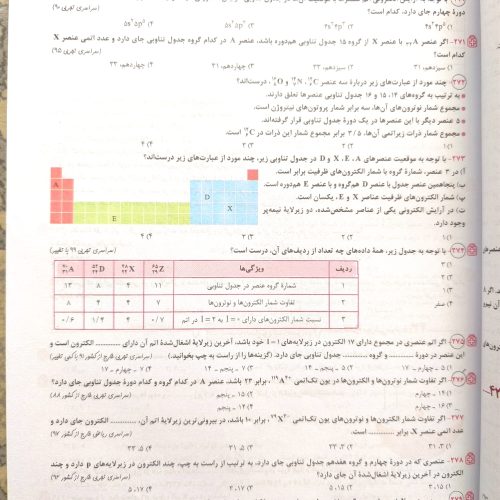 دورهٔ چهارم جای دارد، کدام است؟ (سراسری تجربی ۹۰)
۱) 4s² 4p³ ۲) 4s² 4p⁴ ۳) 5s² 5p³ ۴) 5s² 5p⁴
۲۷۱- اگر عنصر A با عنصر X از گروه ۱۵ جدول تناوبی هم‌دوره باشد، عنصر A در کدام گروه جدول تناوبی جای دارد و عدد اتمی عنصر X
کدام است؟ (سراسری تجربی ۹۵)
۱) سیزدهم، ۳۱ ۲) سیزدهم، ۳۳ ۳) چهاردهم، ۳۱ ۴) چهاردهم، ۳۳
۲۷۲- چند مورد از عبارت‌های زیر دربارهٔ سه عنصر C، N و O، درست‌اند؟
به ترتیب به گروه‌های ۱۴، ۱۵ و ۱۶ جدول تناوبی عنصرها تعلق دارند.
مجموع شمار نوترون‌های آن‌ها، سه برابر شمار پروتون‌های نیتروژن است.
۵ عنصر دیگر با این عنصرها در یک دورهٔ جدول تناوبی قرار گرفته‌اند.
مجموع شمار ذرات زیراتمی آن‌ها، ۳/۵ برابر مجموع شمار این ذرات در C است.
۱) ۱ ۲) ۲ ۳) ۳ ۴) ۴
۲۷۳- با توجه به موقعیت عنصرهای A، E، X و D در جدول تناوبی زیر، چند مورد از عبارت‌های زیر درست‌اند؟
آ) در ۳ عنصر، شمارهٔ گروه با شمار الکترون‌های ظرفیت برابر است.
ب) پنجاهمین عنصر جدول با عنصر D هم‌گروه و با عنصر E هم‌دوره است.
پ) شمار الکترون‌های ظرفیت عناصر X و E، یکسان است.
ت) در آرایش الکترونی یکی از عناصر مشخص‌شده، دو زیرلایهٔ نیمه‌پر
وجود دارد.
A
D
X
E
۱) ۱ ۲) ۲ ۳) ۳ ۴) ۴
۲۷۴- با توجه به جدول زیر، همهٔ داده‌های چه تعداد از ردیف‌های آن، درست است؟ (سراسری تجربی ۹۹ با تغییر)
۱) ۳
۲) ۲
۳) ۱
۴) صفر
ردیف ویژگی‌ها Z X D A
۱ شمارهٔ گروه عنصر در جدول تناوبی ۱۱ ۴ ۸ ۱۳
۲ تفاوت شمار الکترون‌ها و نوترون‌ها ۷ ۴ ۴ ۸
۳ نسبت شمار الکترون‌های دارای l = 0 به l = 2 در اتم ۰/۷ ۴ ۱/۴ ۰/۶
۲۷۵- اگر اتم عنصری در مجموع دارای ۱۷ الکترون در زیرلایه‌های l = 1 خود باشد، آخرین زیرلایهٔ اشغال‌شدهٔ اتم آن دارای ............ الکترون است و
این عنصر در دورهٔ ............ و گروه ............ جدول تناوبی جای دارد. (گزینه‌ها را از راست به چپ بخوانید.) (سراسری تجربی خارج از کشور ۹۱ با کمی تغییر)
۱) ۵ ـ چهارم ـ ۱۷ ۲) ۵ ـ پنجم ـ ۱۴ ۳) ۷ ـ پنجم ـ ۱۴ ۴) ۷ ـ چهارم ـ ۱۷
۲۷۶- اگر تفاوت شمار نوترون‌ها و الکترون‌ها در یون تک‌اتمی ¹¹⁹A⁴⁺، برابر ۲۳ باشد، عنصر A در کدام گروه و کدام دورهٔ جدول تناوبی جای دارد؟
۱) ۱۴ ـ چهارم ۲) ۱۴ ـ پنجم (سراسری تجربی خارج از کشور ۸۸)
۳) ۱۶ ـ چهارم ۴) ۱۶ ـ پنجم
۲۷۷- اگر تفاوت شمار الکترون‌ها و نوترون‌های یون تک‌اتمی ⁷⁹X²⁻، برابر ۱۰ باشد، در بیرونی‌ترین زیرلایهٔ اتم آن، ............ الکترون جای دارد و
عدد اتمی عنصر X، برابر ............ است. (سراسری ریاضی خارج از کشور ۹۷)
۱) ۳، ۳۱ ۲) ۳، ۳۳ ۳) ۵، ۳۱ ۴) ۵، ۳۳
۲۷۸- عنصری که در دورهٔ چهارم و گروه هفدهم جدول تناوبی جای دارد، به ترتیب از راست به چپ، چند الکترون در زیرلایه‌های p دارد و چند
الکترون در آخرین زیرلایهٔ اشغال‌شدهٔ آن جای دارد؟ (سراسری تجربی خارج از کشور ۹۲)
۱) ۱۵، ۳ ۲) ۱۵، ۵ ۳) ۱۷، ۳ ۴) ۱۷، ۵